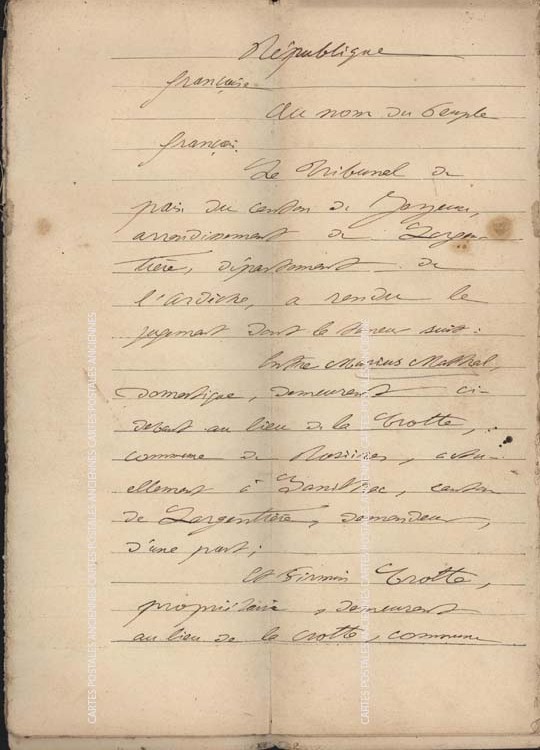 République
française
Au nom du Peuple
français.
Le Tribunal de
paix du canton de Joyeuse,
arrondissement de Largen
tière, département de
l'Ardèche, a rendu le
jugement dont la teneur suit :
Entre Marius Mathal,
domestique, demeurant ci-
devant au lieu de la Crotte,
commune de Rosières, actu-
ellement à Sanilhac, canton
de Largentière, demandeur,
d'une part ;
Et Firmin Crotte,
propriétaire, demeurant
au lieu de la Crotte, commune
CARTES POSTALES ANCIENNES CARTES POSTALES ANCIENNES CARTES POSTALES ANCIENNES
CARTES POSTALES ANCIENNES CARTES POSTALES ANCIENNES CARTES POSTALES ANCIENNES